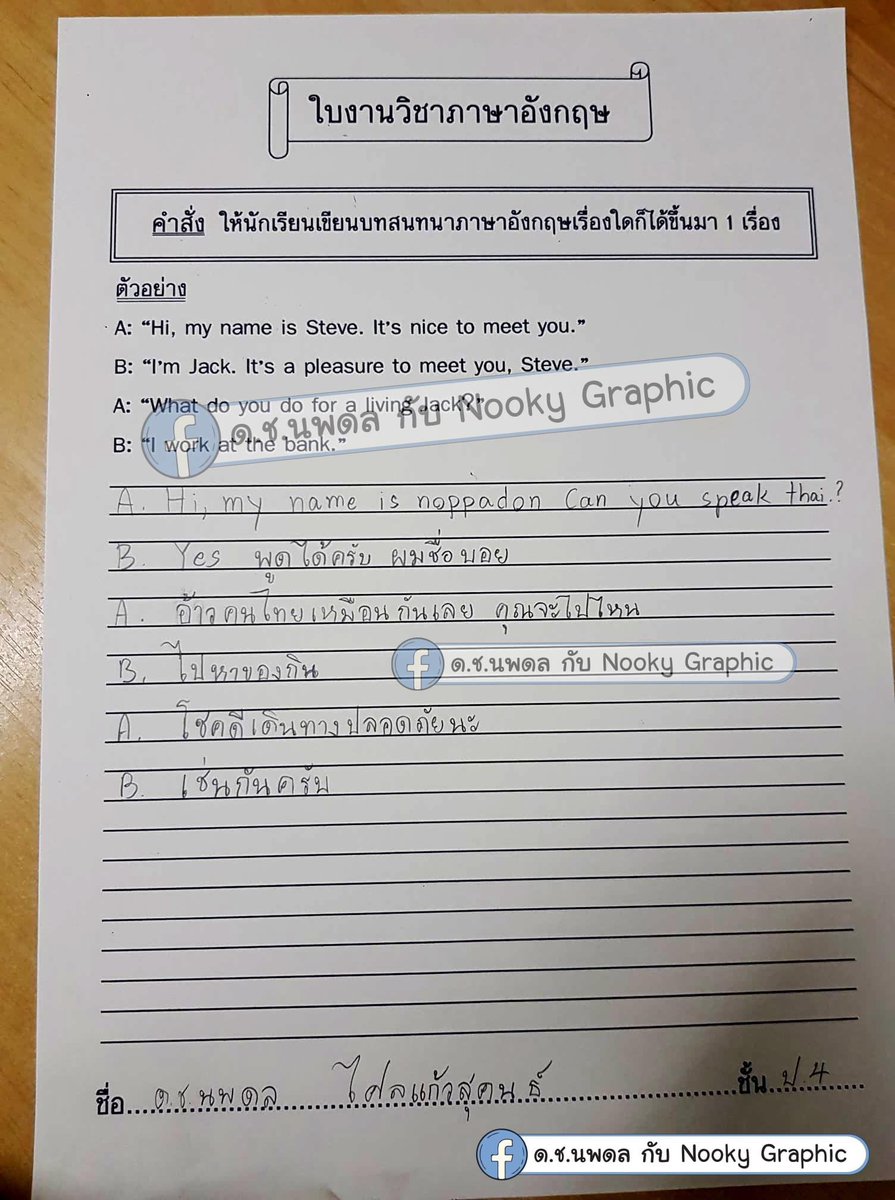 ใบงานวิชาภาษาอังกฤษ
คำสั่ง ให้นักเรียนเขียนบทสนทนาภาษาอังกฤษเรื่องใดก็ได้ขึ้นมา 1 เรื่อง
ตัวอย่าง
A: “Hi, my name is Steve. It’s nice to meet you.”
B: “I’m Jack. It’s a pleasure to meet you, Steve.”
A: “What do you do for a living Jack?”
B: “I work at the bank.”
ด.ช.นพดล กับ Nooky Graphic
A. Hi, my name is noppadon Can you speak thai.?
B. Yes พูดได้ครับ ผมชื่อบอย
A. อ้าวคนไทยเหมือนกันเลย คุณจะไปไหน
B. ไปหาของกิน
ด.ช.นพดล กับ Nooky Graphic
A. โชคดีเดินทางปลอดภัยนะ
B. เช่นกันครับ
ชื่อ ด.ช.นพดล ไศลแก้วสุคนธ์ ชั้น ป.4
ด.ช.นพดล กับ Nooky Graphic